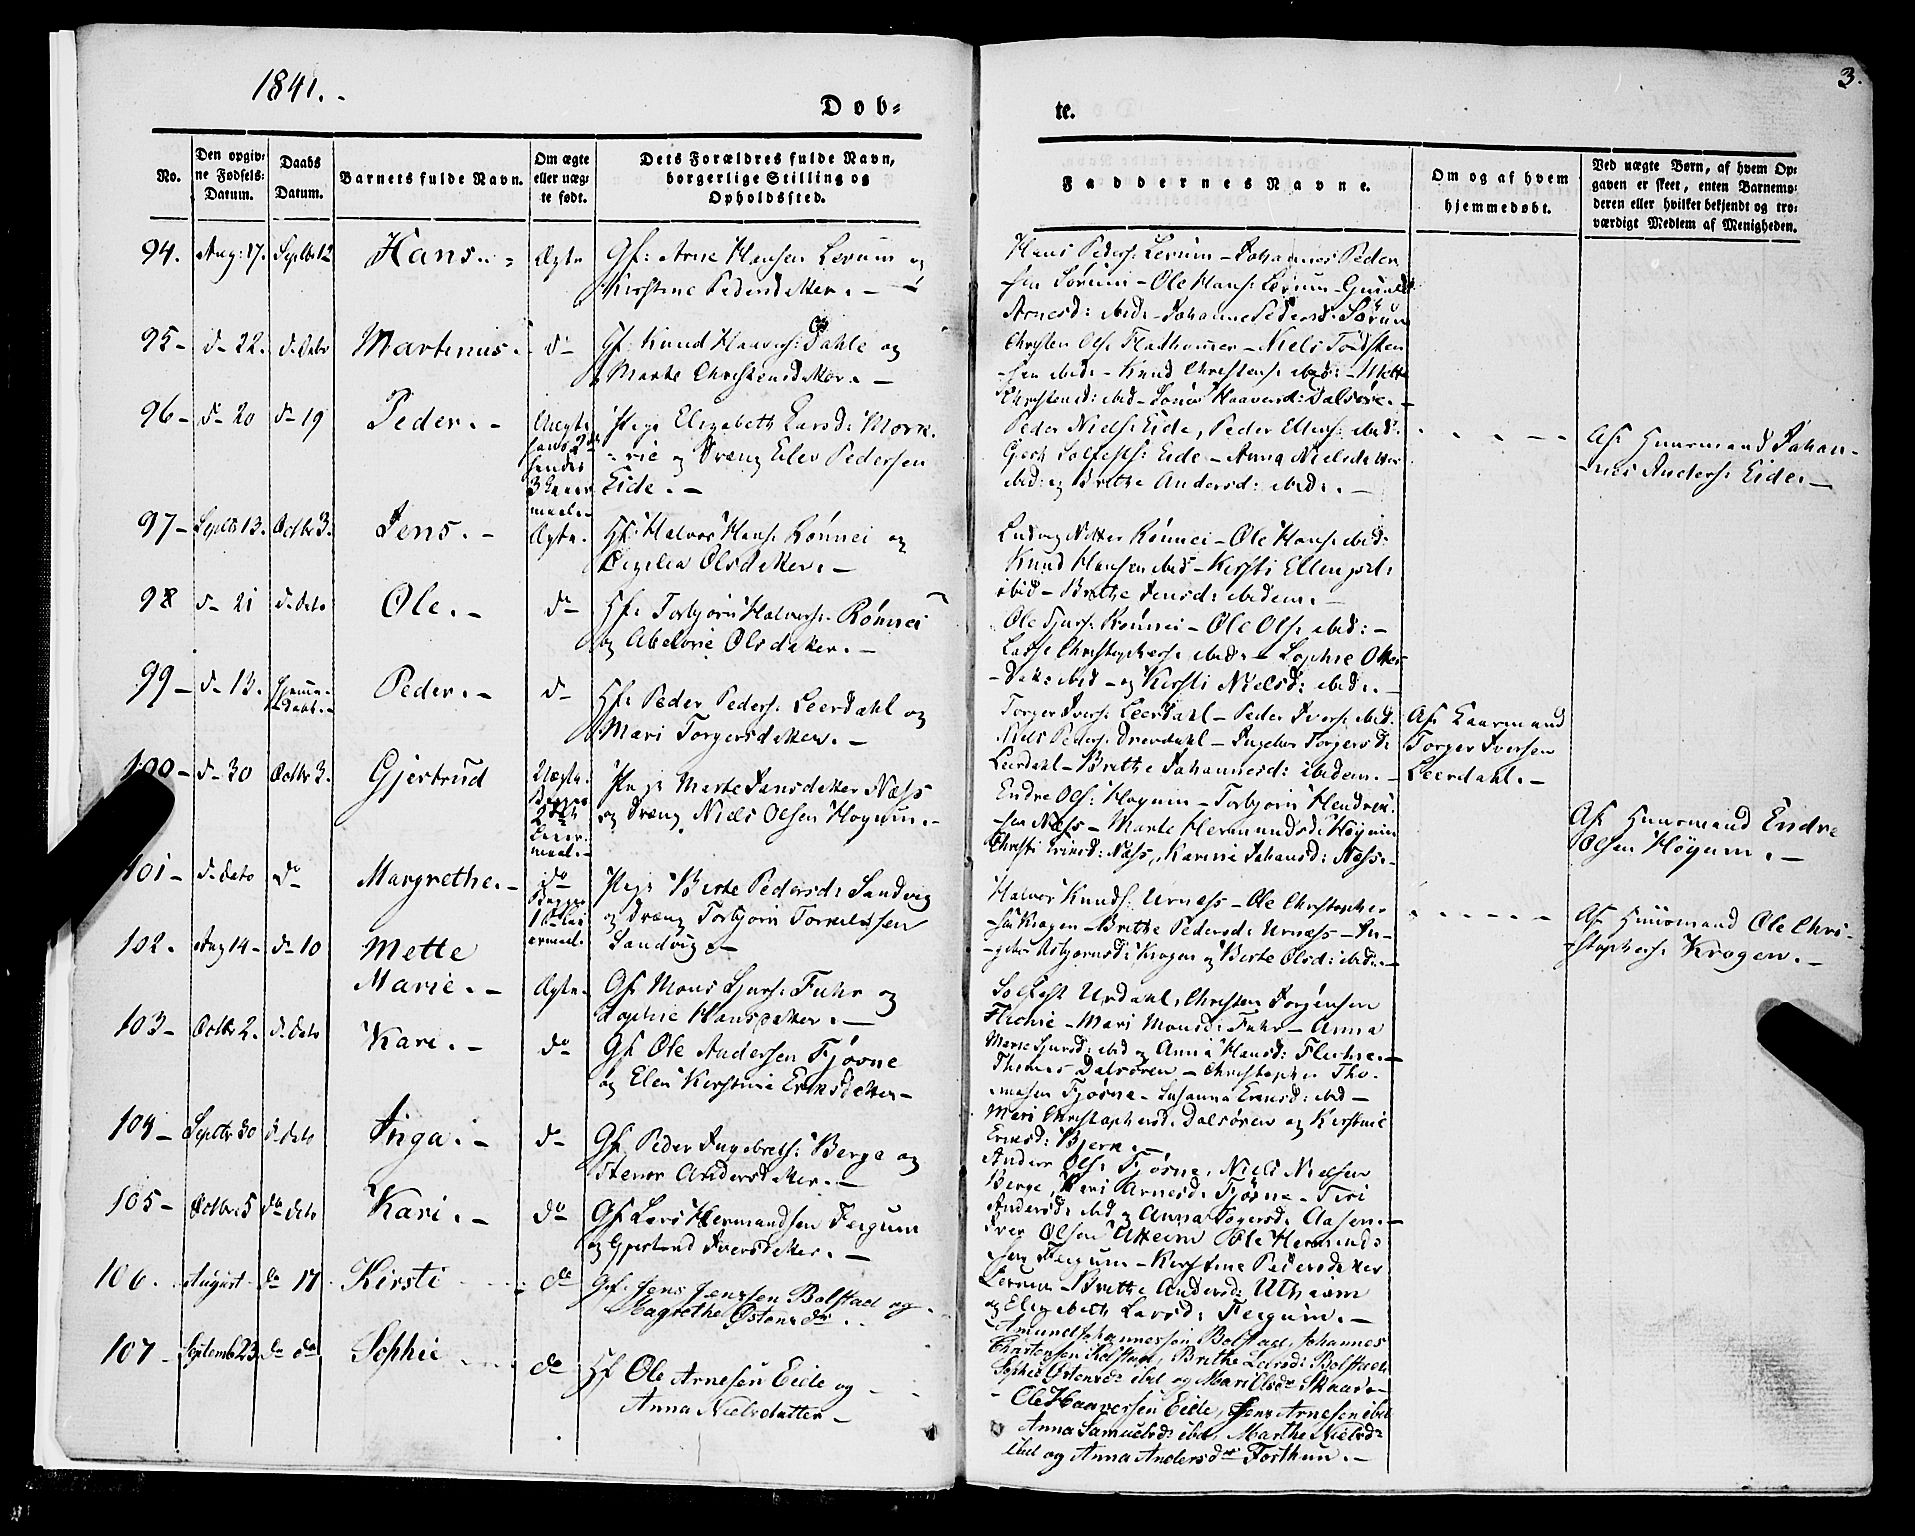 1841.
Døb=
te.
3.
No.
Den opgiv=
ne Fødsels=
Datum.
Daabs
Datum.
Barnets fulde Navn.
Om ægte
eller uæg=
te født.
Dets Forældres fulde Navn,
borgerlige Stilling og
Opholdssted.
Faddernes Navne.
Om og af hvem
hjemmedøbt.
Ved uægte Børn, af hvem Op=
gaven er skeet, enten Barnemo=
deren eller hvilket bekjendt og tro=
værdigt Medlem af Menigheden.
94. Aug: 17. Septbr 12 Hans. Ægte Gf: Arne Hansen Lerum og
Kirstine Pedersdatter. -
Hans Peders: Lerum - Johannes Peder
sen Sørum - Ole Hans: Lerum -
Arnesd: ibid: - Johanne Pedersd: Sørum
95 - d - 22. d. dato Martinus. d - Gf: Knud Haavers: Dahle og
Marte Christensdatter. -
Christen Ols: Fladhamer - Niels Tordsten
sen ibid: - Knud Christens: ibid: - Mette
Christensd: ibid - Haaversd: Dalsøre. -
96 - d - 20 d - 19 Peder. - Uægte
hans 2de
hendes
3 Leier
maal. -
Pige Elizabeth Larsd: Mork
rie og Dreng Elev Pedersen
Eide. -
Peder Niels: Eide, Peder Ellens: ibid:
Solfests: Eide - Anna Nielsdatter
ibid: og Brithe Andersd: ibid: . -
Af Huusmand Johan-
nes Anders: Eide. -
97 - Septbr 13. Octbr 3. Jens. - Ægte. Hf: Halvor Hans: Rønnei og
Cezilia Olsdatter. -
Ludvig Rønnei - Ole Hans: ibid:
Knud Hansen ibid - Kirsti Ellingsd:
ibid - Brithe Jensd: ibidem. -
98 d - 21 d. dato Ole. - d - Hf: Torbjørn Halvors: Rønnei
og Abelone Olsdatter. -
Ole Sjurs: Rønnei - Ole Ols: ibid: -
Lasse Christophers: ibid: - Sophie Ottes-
datt: ibid - og Kirsti Nielsd: ibid: . -
99 - d - 13. Hjemme
døbt. - Peder. - d - Hf: Peder Peders: Leerdahl og
Mari Torgersdatter. -
Torger Ivers: Leerdahl - Peder Ivers: ibid.
Niels Peders: Drevdahl - Ingebor Torgersd:
Leerdahl - Brithe Johannesd: ibidem. -
Af Gaarmand
Torger Iversen
Leerdahl. -
100 - d - 30 Octbr 3. Gjertrud Uægte.
Begges
2det
Leier
maal. -
Pige Marte Jansdatter Næss
og Dreng Niels Olsen Høgum. -
Endre Ols: Høgum - Torbjørn Hendrik
sen Næss - Marte Hermundsd: Høgum
Christi: Næss, Karine Johansd: Næss. -
Af Huusmand Endre
Olsen Høgum. -
101 - d. dato do Margrethe. - do
Begges
1ste Lei
ermaal. -
Pige Berte Pedersd: Sandvig
og Dreng Torbjørn Torkelssen
Sandvig. -
Halvor Knuds: Urnæss - Ole Christopher
sen Krogen - Brithe Pedersd: Urnæss - In-
gebor Asbjørnsd: Krogen og Berte Olsd: ibid: . -
Af Huusmand Ole Chri-
stophers: Krogen. -
102. Aug 14 - d - 10 Mette
Marie. - Ægte. Gf Mons Sjurs: Fuhr og
Sophie Hansdatter. -
Solfest Urdahl, Christen Jørgensen
Fluhie - Mari Monsd: Fuhr - Anna
Marie Sjursd: ibid og Anna Hansd: Fluhie. -
103 - Octbr 2. d. dato Kari. - do Gf Ole Andersen Fjøsne
og Elen Kirstine Eriksdatter -
Thomas Dalsøren - Christopher Tho-
massen Fjøsne - Susanna Eriksd: ibid -
Mari Christophersd. Dalsøren og Kirstine
Eriksd: Bjerk. -
104 - Septbr 30 d. dato Inga. - do Gf Peder Ingebrets: Berge og
Stenor Andersdatter. -
Anders Ols: Fjøsne, Niels Nielsen
Berge, Kari Arnesd: Fjøsne - Siri
Andersd: ibid og Anna Aasen. -
105 - Octbr: 5 do dato Kari. - do Gf Lars Hermandsen Fergum
og Gjertrud Iversdatter. -
Iver Olsen Uttheim Ole Hermunds
sen Fergum - Kirstine Pedersdatter
Lerum - Brithe Andersd: Uthiem
og Elizabeth Larsd: Fergum. -
106. August do 17 Kirsti do Gf. Jens Jenssen Bolstad og
Magrethe Østensdr.
Amund Johannessen Bolstad, Johannes
Christensen Kolstad, Brithe Larsd: Bolstad
Sophie Østensdr ibid og Mari Olsdr Skaar -
107 - Septemb 23 do do Sophie do Hf Ole Arnesen Eide og
Anna Nielsdatter -
Ole Haaversen Eide, Jens Arnesen ibid
Anna Samuelsdr ibid, Marthe Nielsdr
ibid og Anna Andersdr Forthun. -